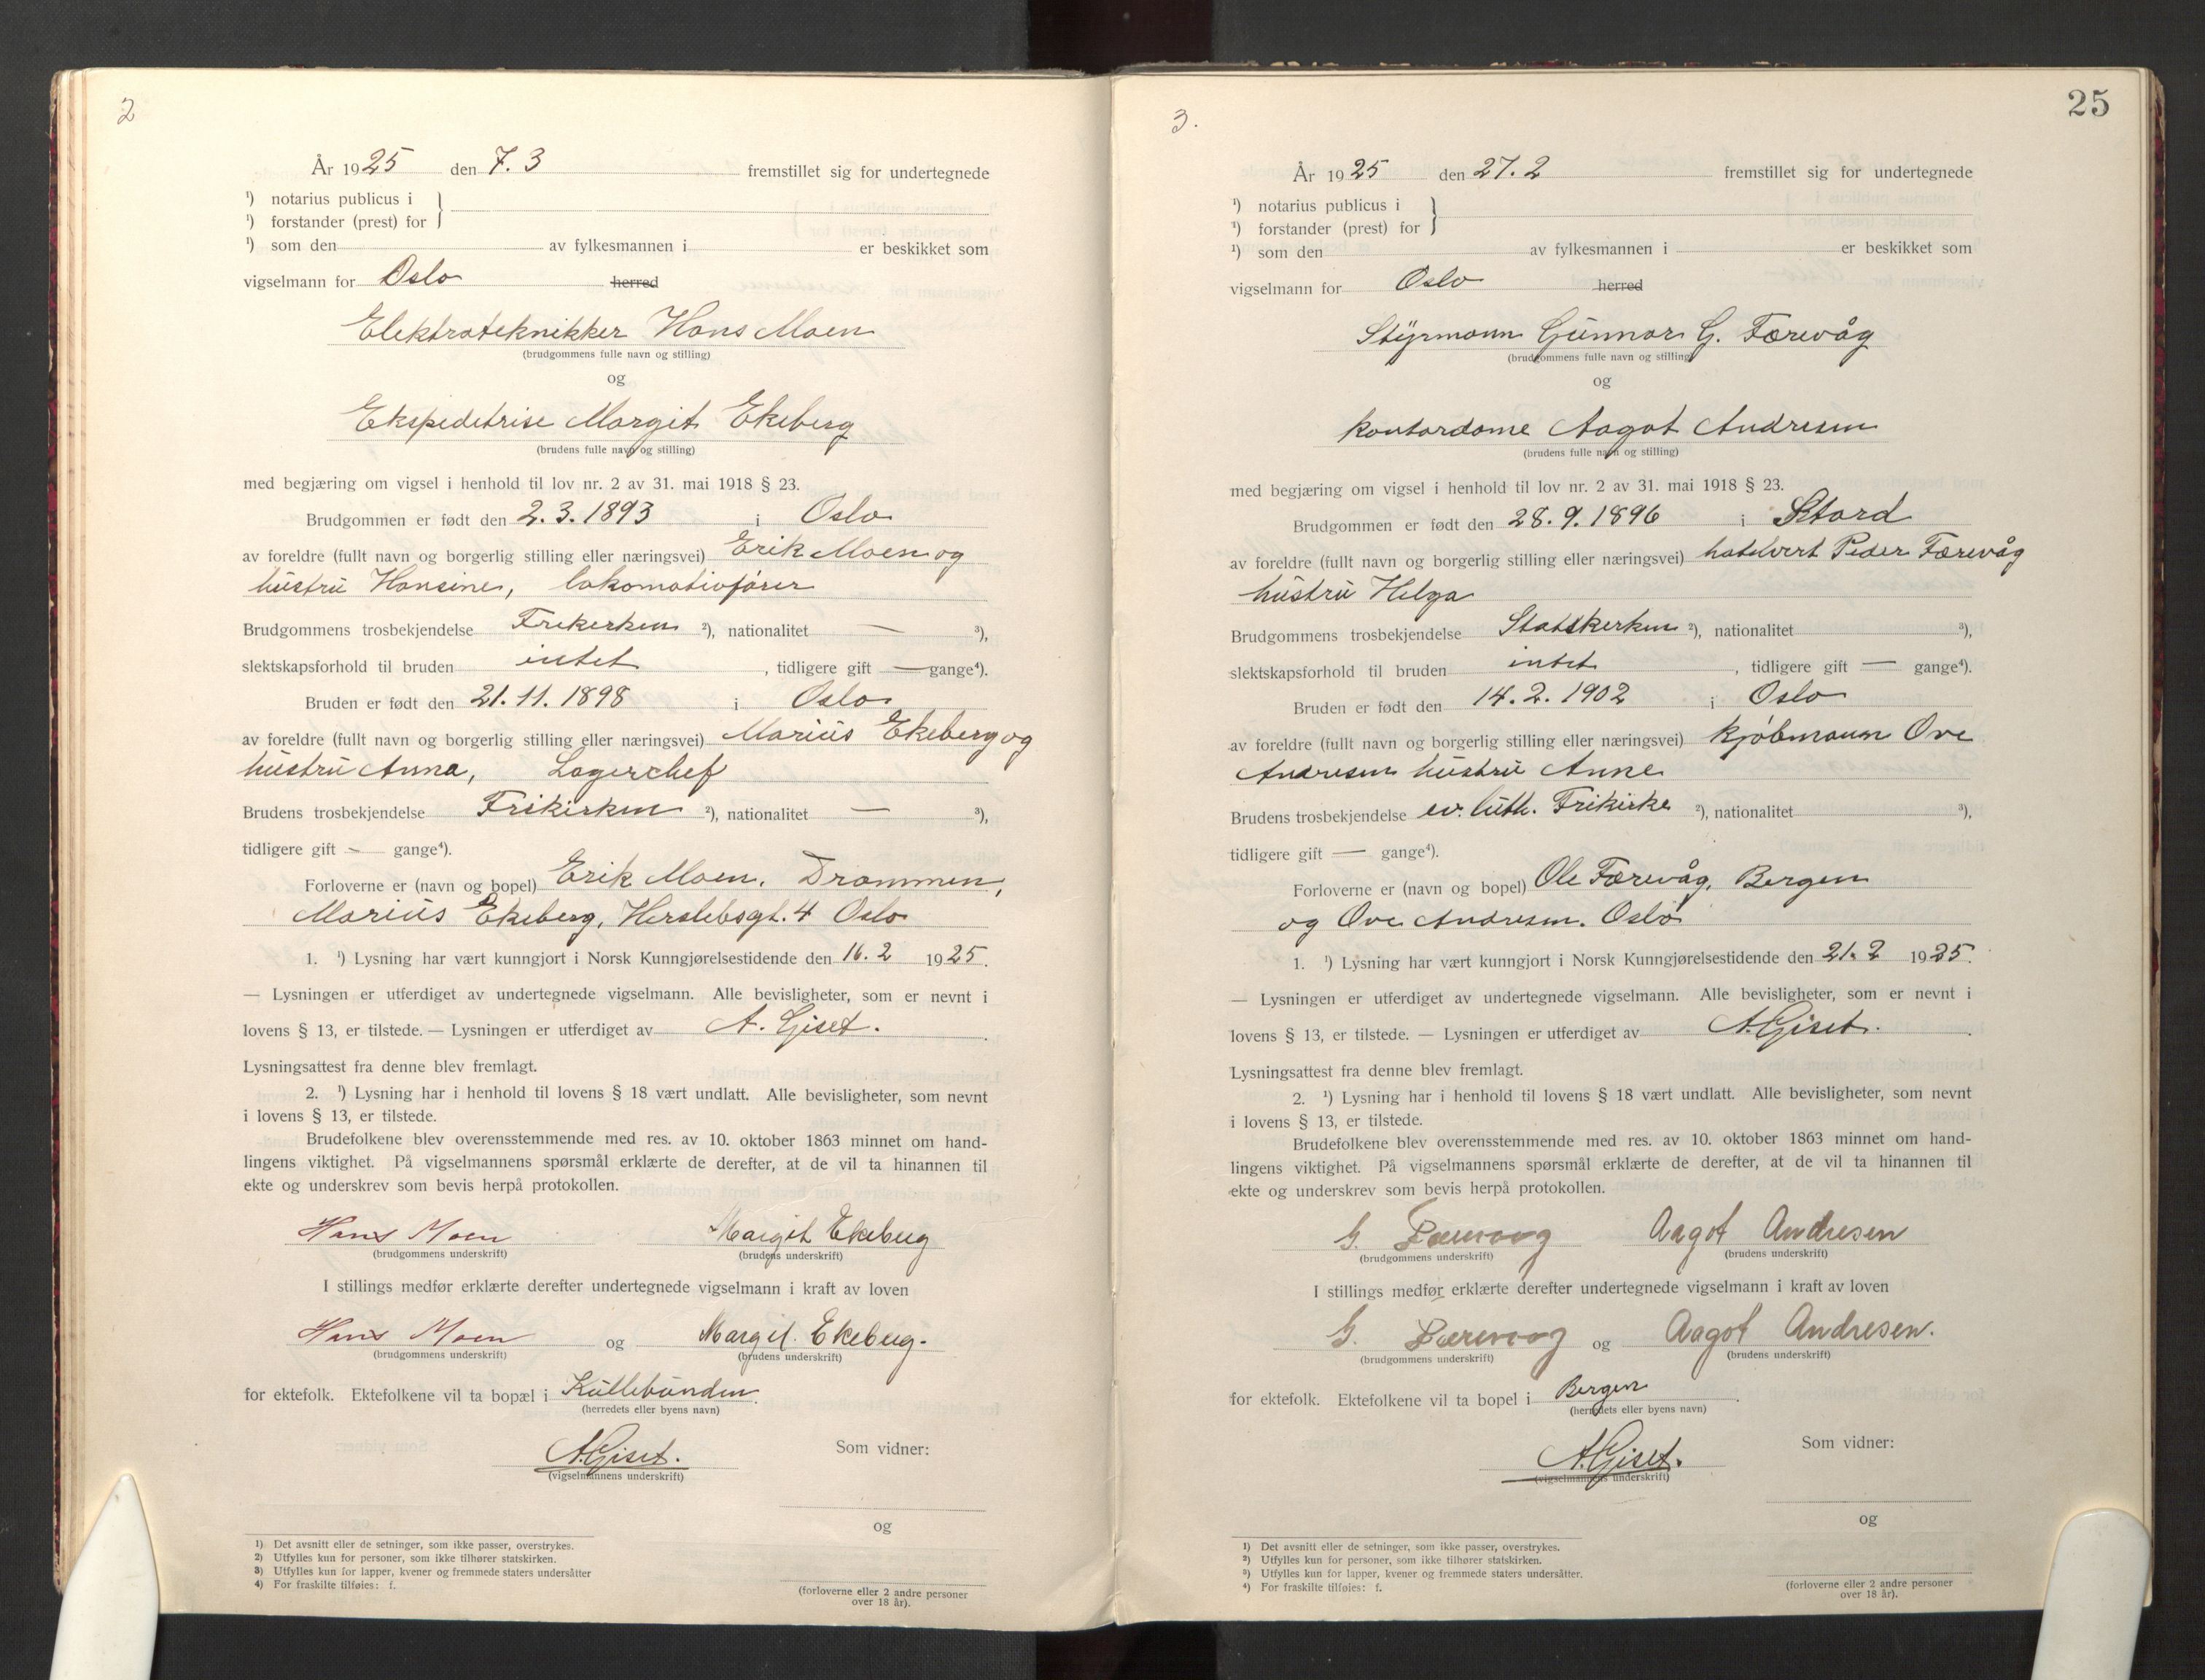 2
År 1925 den 7. 3 fremstillet sig for undertegnede
¹) notarius publicus i
¹) forstander (prest) for
¹) som den av fylkesmannen i er beskikket som
vigselmann for Oslo herred
Elektroteknikker Hans Moen
(brudgommens fulle navn og stilling)
og
Ekspeditrise Margit Ekeberg
(brudens fulle navn og stilling)
med begjæring om vigsel i henhold til lov nr. 2 av 31. mai 1918 § 23.
Brudgommen er født den 2. 3. 1893 i Oslo
av foreldre (fullt navn og borgerlig stilling eller næringsvei) Erik Moen og
hustru Hansine, lokomotivfører
Brudgommens trosbekjendelse Frikirken ²), nationalitet — ³),
slektskapsforhold til bruden intet, tidligere gift — gange⁴).
Bruden er født den 21. 11. 1898 i Oslo
av foreldre (fullt navn og borgerlig stilling eller næringsvei) Marius Ekeberg og
hustru Anna, Lagerchef
Brudens trosbekjendelse Frikirken ²), nationalitet — ³),
tidligere gift — gange⁴).
Forloverne er (navn og bopel) Erik Moen, Drammen,
Marius Ekeberg, Herslebsgt. 4 Oslo
1. ¹) Lysning har vært kunngjort i Norsk Kunngjørelsestidende den 16. 2 1925.
— Lysningen er utferdiget av undertegnede vigselmann. Alle bevisligheter, som er nevnt i
lovens § 13, er tilstede. — Lysningen er utferdiget av A. Giset.
Lysningsattest fra denne blev fremlagt.
2. ¹) Lysning har i henhold til lovens § 18 vært undlatt. Alle bevisligheter, som nevnt
i lovens § 13, er tilstede.
Brudefolkene blev overensstemmende med res. av 10. oktober 1863 minnet om hand-
lingens viktighet. På vigselmannens spørsmål erklærte de derefter, at de vil ta hinannen til
ekte og underskrev som bevis herpå protokollen.
Hans Moen Margit Ekeberg
(brudgommens underskrift) (brudens underskrift)
I stillings medfør erklærte derefter undertegnede vigselmann i kraft av loven
Hans Moen og Margit Ekeberg.
(brudgommens underskrift) (brudens underskrift)
for ektefolk. Ektefolkene vil ta bopæl i Kullebunden.
(herredets eller byens navn)
A. Giset. Som vidner:
(vigselmannens underskrift)
og
¹) Det avsnitt eller de setninger, som ikke passer, overstrykes.
²) Utfylles kun for personer, som ikke tilhører statskirken.
³) Utfylles kun for lapper, kvener og fremmede staters undersåtter
⁴) For fraskilte tilføies: f.
(forloverne eller 2 andre personer
over 18 år).
3.
25
År 1925 den 27. 2 fremstillet sig for undertegnede
¹) notarius publicus i
¹) forstander (prest) for
¹) som den av fylkesmannen i er beskikket som
vigselmann for Oslo herred
Styrmann Gunnar G. Færevåg
(brudgommens fulle navn og stilling)
og
kontordame Aagot Andresen
(brudens fulle navn og stilling)
med begjæring om vigsel i henhold til lov nr. 2 av 31. mai 1918 § 23.
Brudgommen er født den 28. 9. 1896 i Stord
av foreldre (fullt navn og borgerlig stilling eller næringsvei) hotelvert Peder Færevåg
hustru Helga
Brudgommens trosbekjendelse Statskirken ²), nationalitet ³),
slektskapsforhold til bruden intet, tidligere gift — gange⁴).
Bruden er født den 14. 2. 1902 i Oslo
av foreldre (fullt navn og borgerlig stilling eller næringsvei) kjøbmann Ove
Andresen hustru Anne
Brudens trosbekjendelse ev. luth. Frikirke ²), nationalitet ³),
tidligere gift — gange⁴).
Forloverne er (navn og bopel) Ole Færevåg, Bergen
og Ove Andresen. Oslo
1. ¹) Lysning har vært kunngjort i Norsk Kunngjørelsestidende den 21. 2 1925.
— Lysningen er utferdiget av undertegnede vigselmann. Alle bevisligheter, som er nevnt i
lovens § 13, er tilstede. — Lysningen er utferdiget av A. Giset.
Lysningsattest fra denne blev fremlagt.
2. ¹) Lysning har i henhold til lovens § 18 vært undlatt. Alle bevisligheter, som nevnt
i lovens § 13, er tilstede.
Brudefolkene blev overensstemmende med res. av 10. oktober 1863 minnet om hand-
lingens viktighet. På vigselmannens spørsmål erklærte de derefter, at de vil ta hinannen til
ekte og underskrev som bevis herpå protokollen.
G. Færevaag Aagot Andresen
(brudgommens underskrift) (brudens underskrift)
I stillings medfør erklærte derefter undertegnede vigselmann i kraft av loven
G. Færevaag og Aagot Andresen.
(brudgommens underskrift) (brudens underskrift)
for ektefolk. Ektefolkene vil ta bopel i Bergen
(herredets eller byens navn)
A. Giset. Som vidner:
(vigselmannens underskrift)
og
¹) Det avsnitt eller de setninger, som ikke passer, overstrykes.
²) Utfylles kun for personer, som ikke tilhører statskirken.
³) Utfylles kun for lapper, kvener og fremmede staters undersåtter.
⁴) For fraskilte tilføies: f.
(forloverne eller 2 andre personer
over 18 år).